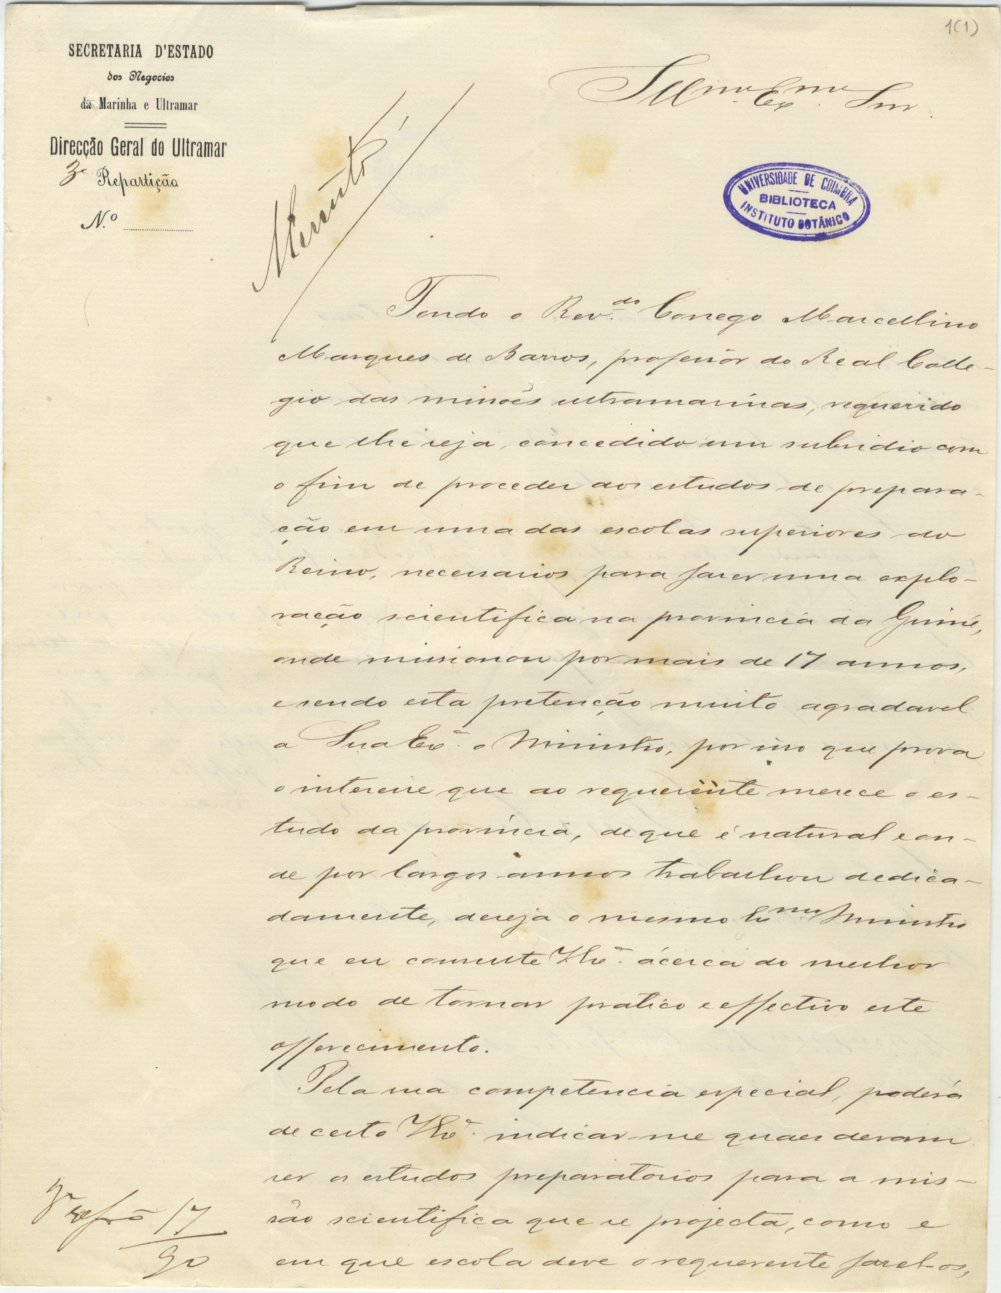 1(1)
SECRETARIA D'ESTADO
dos Negocios
da Marinha e Ultramar
Direcção Geral do Ultramar
3ª Repartição
N.º
Illmo. Exmo. Snr.
Minuta
UNIVERSIDADE DE COIMBRA
BIBLIOTECA
INSTITUTO BOTÂNICO
Tendo o Rev.do Conego Marcellino
Marques de Barros, professor do Real Colle-
gio das missões ultramarinas, requerido
que lhe seja concedido um subsidio com
o fim de proceder aos estudos de prepara-
ção em uma das escolas superiores do
Reino, necessarios para fazer uma explo-
ração scientifica na provincia da Guiné,
onde missionou por mais de 17 annos,
e sendo esta pretenção muito agradavel
a Sua Exª o Ministro, por isso que prova
o interesse que ao requerente merece o es-
tudo da provincia, de que é natural e on-
de por largos annos trabalhou dedica-
damente, deseja o mesmo Exmo. Ministro
que eu consulte V. Exª. ácerca do melhor
modo de tornar pratico e effectivo este
offerecimento.
Pela sua competencia especial, poderá
de certo V. Exª. indicar-me quaes devam
ser os estudos preparatorios para a mis-
são scientifica que se projecta, como e
em que escola deve o requerente fazel-os,
17
90